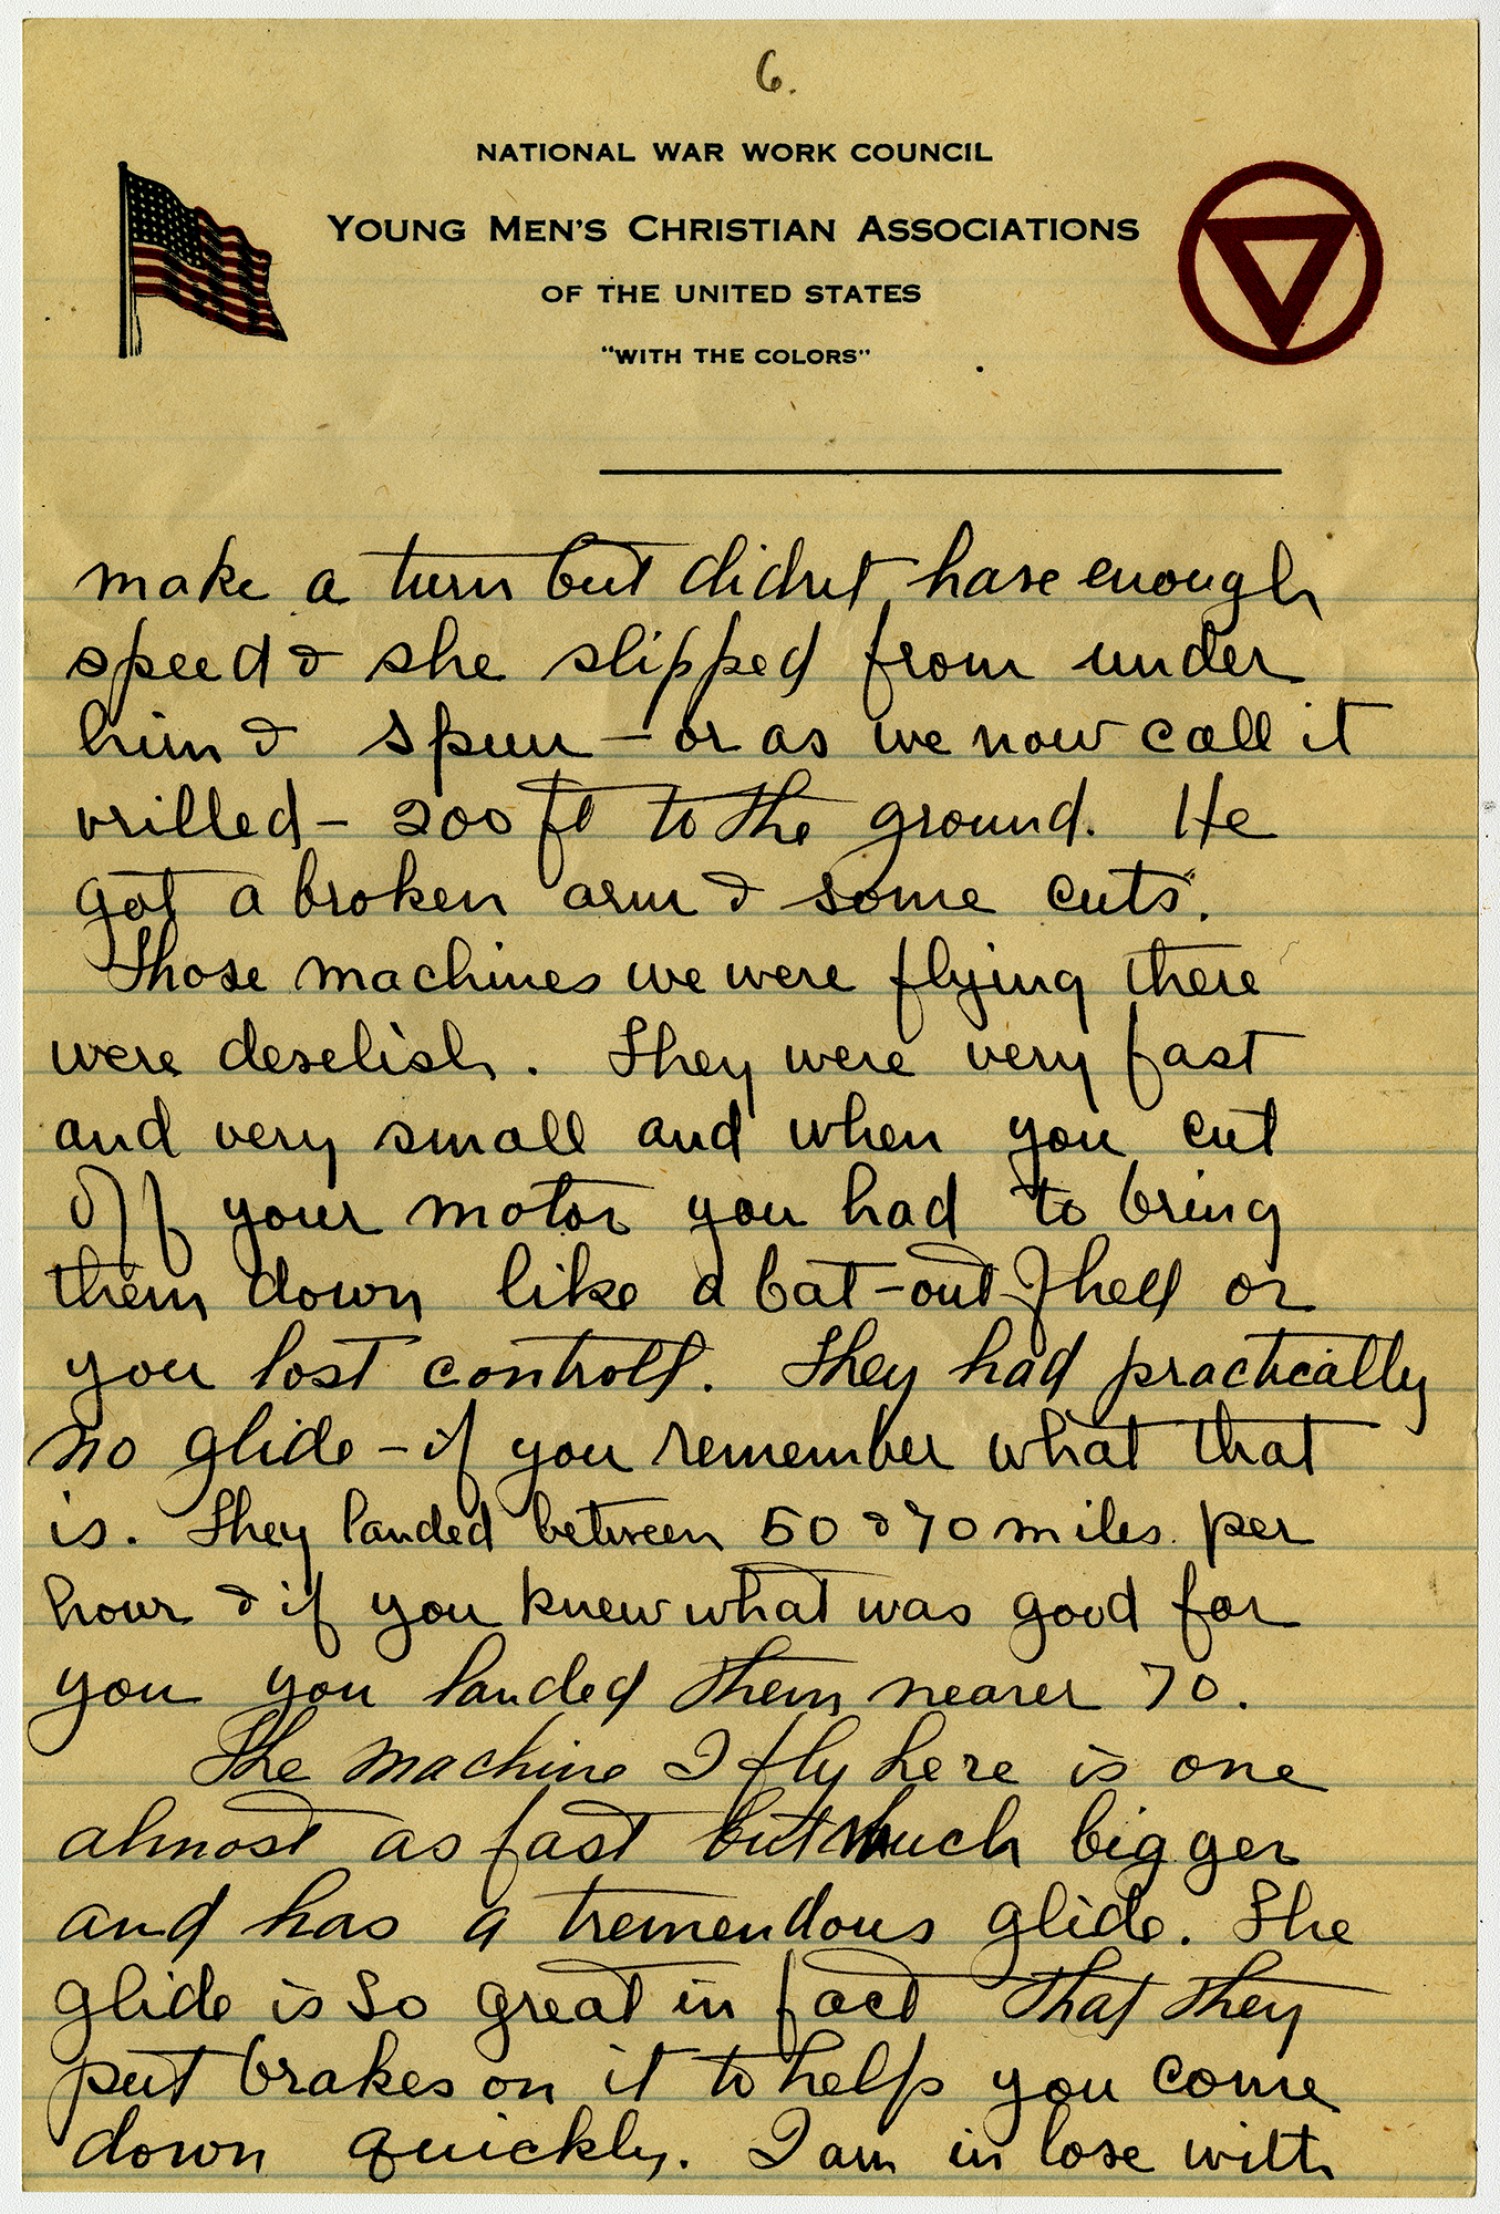 6.
NATIONAL WAR WORK COUNCIL
YOUNG MEN'S CHRISTIAN ASSOCIATIONS
OF THE UNITED STATES
"WITH THE COLORS"
make a turn but didn't have enough
speed & she slipped from under
him & spun - or as we now call it
vrilled - 200 ft to the ground. He
got a broken arm & some cuts.
Those machines we were flying there
were develish. They were very fast
and very small and when you cut
off your motor you had to bring
them down like a bat-out-of hell or
you lost controll. They had practically
no glide - if you remember what that
is. They landed between 50 & 70 miles per
hour & if you knew what was good for
you you landed them nearer 70.
The machine I fly here is one
almost as fast but much bigger
and has a tremendous glide. The
glide is so great in fact that they
put brakes on it to help you come
down quickly. I am in love with